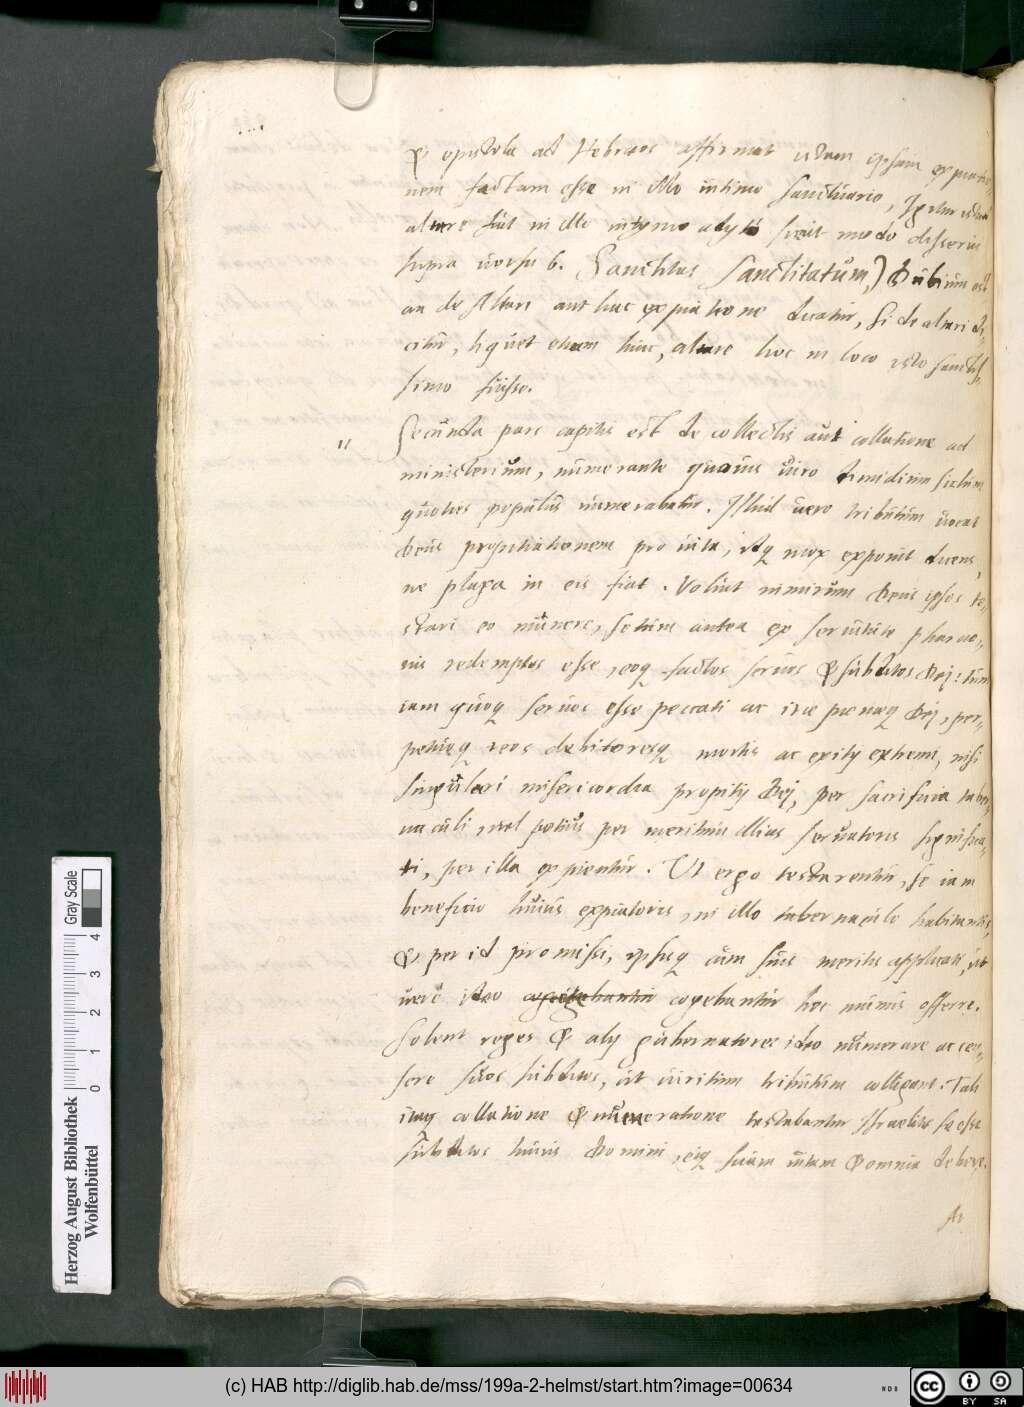 & epistola ad Hebraeos affirmat istam ipsam expiatio-
nem factam esse in illo intimo sanctuario, Igitur istud
altare fuit in illo intymo adyto sicut modo disserui
supra versu 6. Sanctitas sanctitatum,) Dubium est
an de Altari aut hac expiatione dicatur, Si de altari di-
citur, liquet etiam hinc, altare hoc in loco isto sanctis-
simo fuisse.
11 Secunda pars capitis est de collectis aut collatione ad
ministerium, numerante quovis viro dimidium siclum
quoties populus numerabatur. Illud vero tributum vocat
Deus propitiationem pro vita, Atq mox exponit dicens,
ne plaga in eis fiat. Voluit nimirum Deus ipsos te-
stari eo munere, se tum antea ex servitute Pharao-
nis redemptos esse, eoq factos servos & subditos Dej: tum
iam quoq servos esse peccati ac irae poenaeq Dej, per-
petuoq reos debitoresq mortis ac exitij extremi, nisi
singulari misericordia propitij Dej, per sacrificia taber-
naculi, vel potius per meritum illius servatoris significa-
ti, per illa expientur. Ut ergo testarentur, se iam
beneficio huius expiatoris, in illo tabernaculo habitantis,
& per id promissi, ipsisq cum suis meritis applicati, ut
vere isto cogebantur hoc munus offerre.
Solent reges & alij gubernatores ideo numerare ac cen-
sere suos subditos, ut viritim tributum colligant. Tali
itaq collatione & numeratione testabantur Israelitae se esse
subditos huius Domini, eiq suam vitam & omnia debere.
Gray Scale
4
3
2
1
0
Herzog August Bibliothek
Wolfenbüttel
(c) HAB http://diglib.hab.de/mss/199a-2-helmst/start.htm?image=00634
cc BY SA